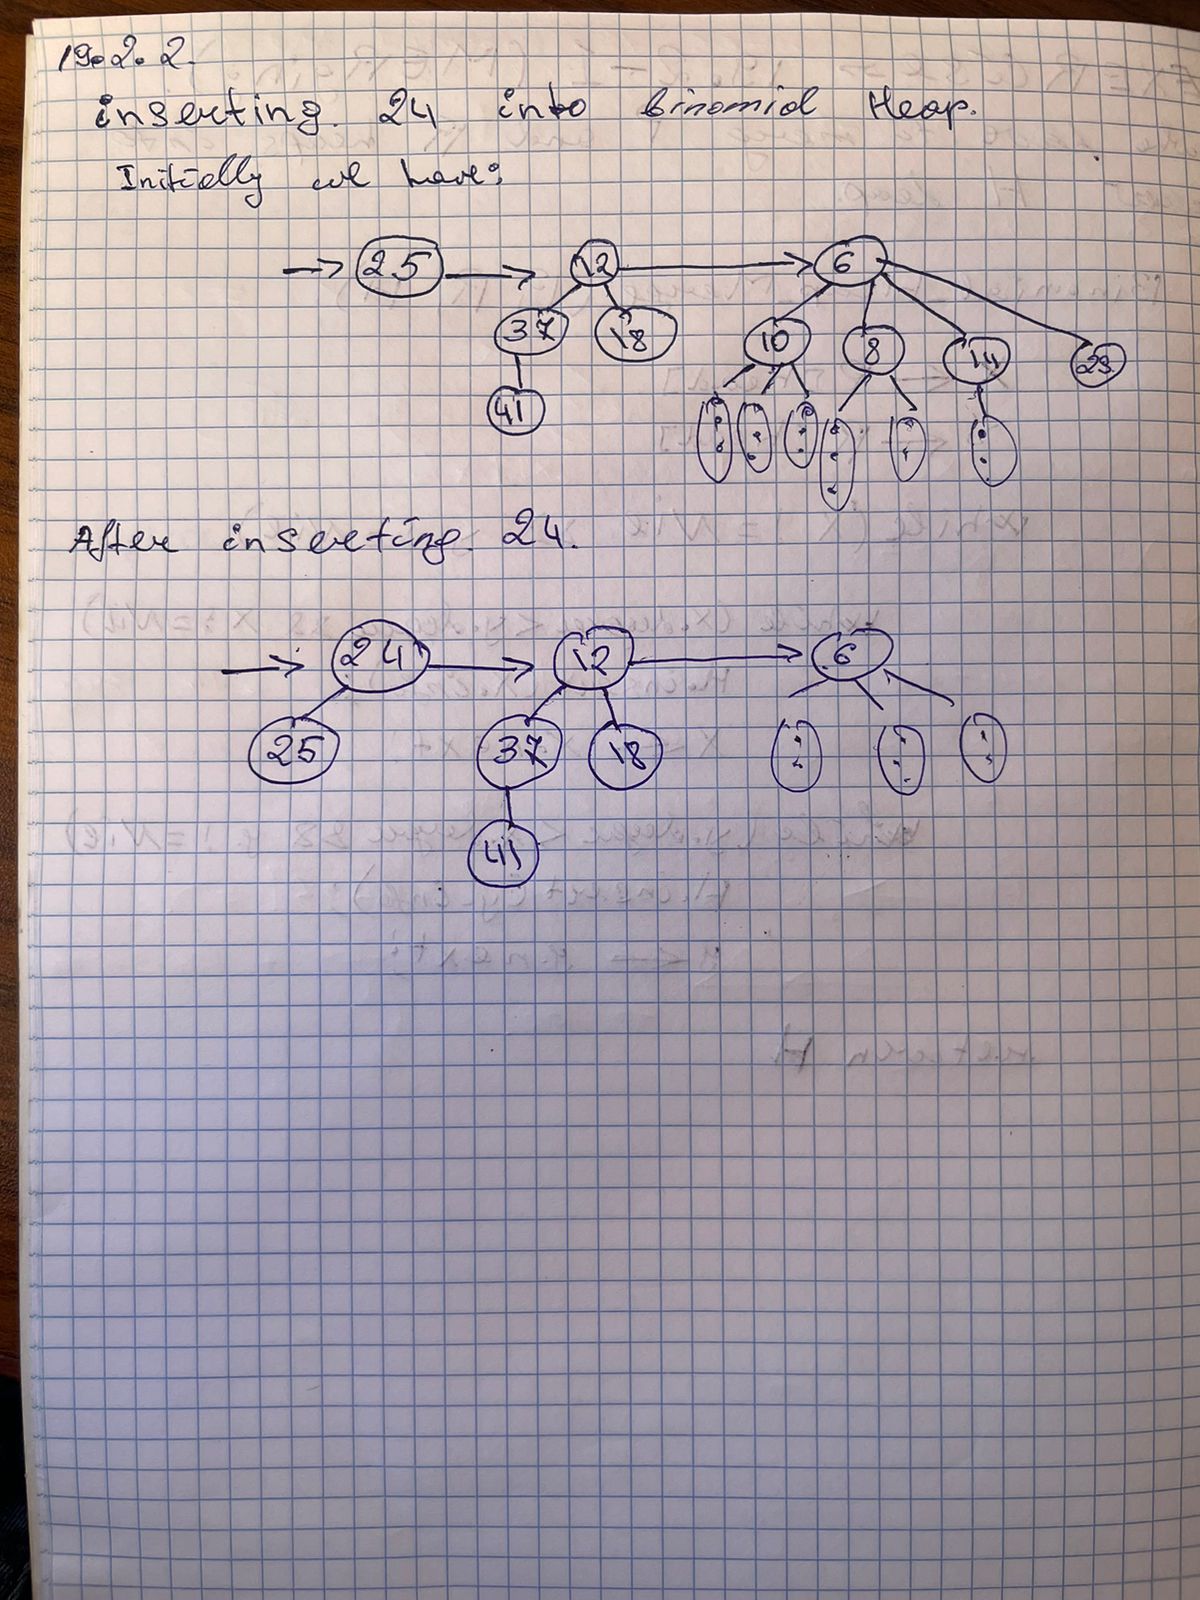 19.2.2.
inserting. 24 into binomial Heap.
Initially we have:
25 12 6
37 18 10 8 14 29
41
After inserting. 24.
24 12 6
25 37 18
41